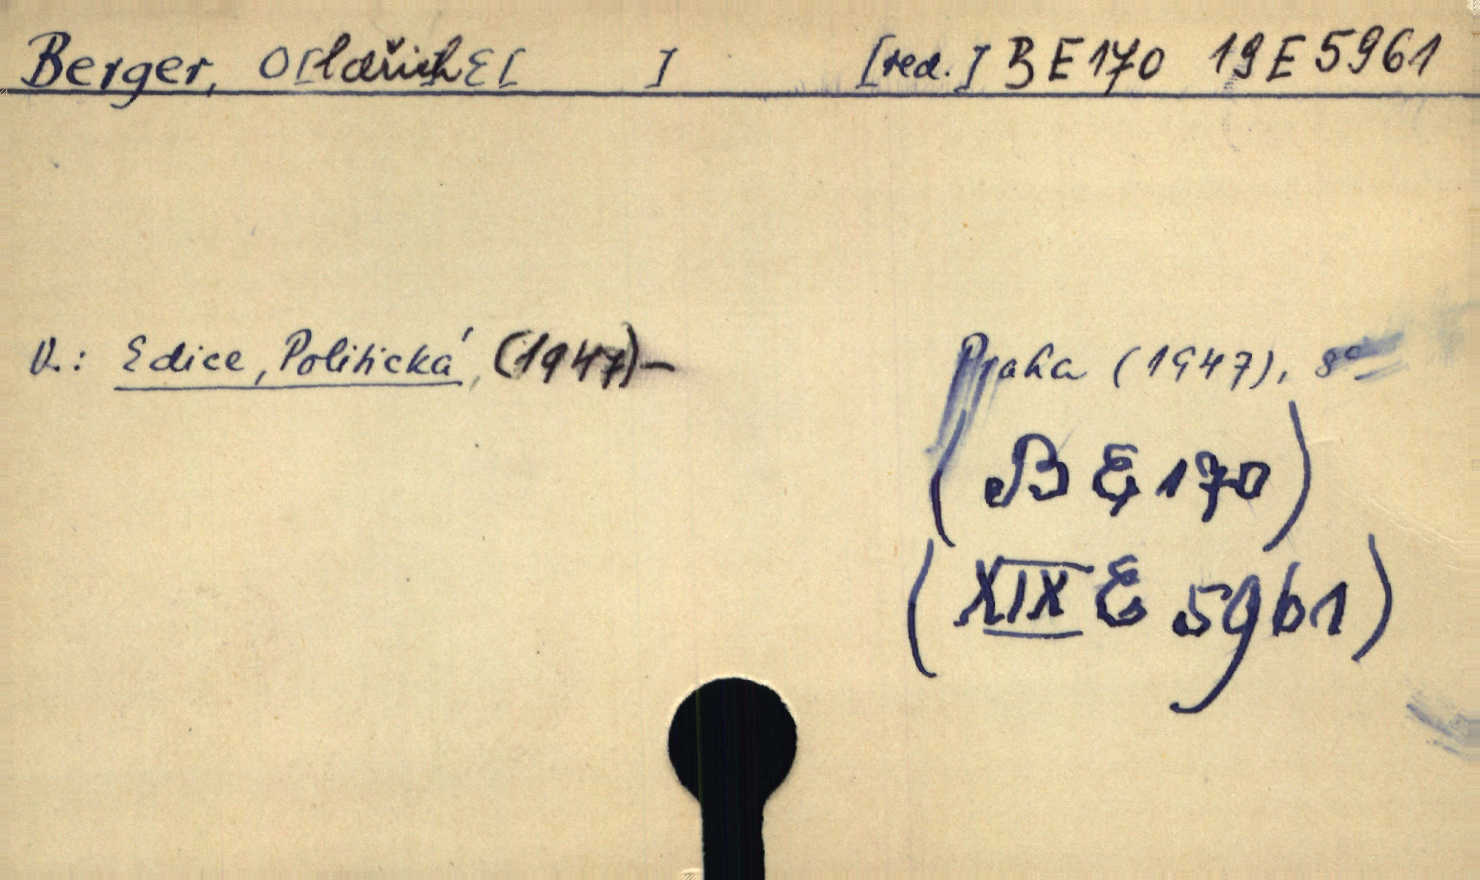 Berger, O[ldřich] E[ ] [red.] B E 170 19 E 5961
V.: Edice, Politická, (1947)- Praha (1947), 8°
(B E 170)
(XIX E 5961)